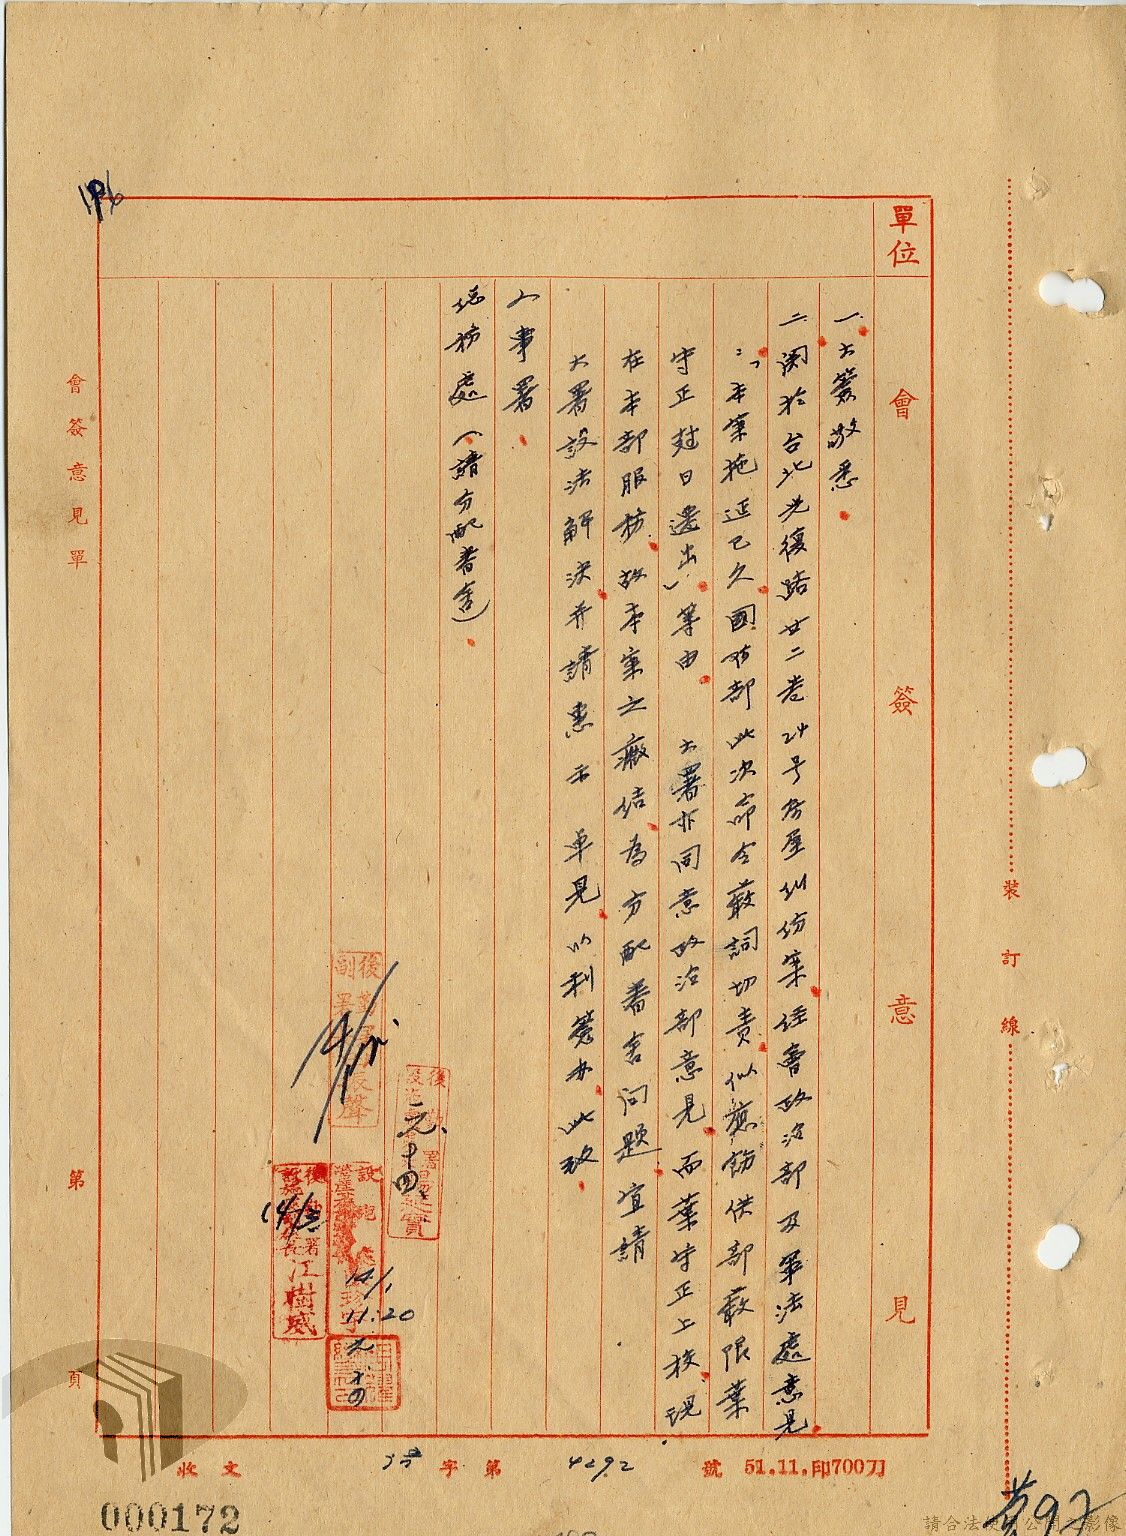 單位
會簽意見
一、大簽敬悉
二、關於台北光復路廿二巷24号房屋糾紛案経會政治部及軍法處意見
：「本案拖延已久國防部此次命令嚴詞切責似應飭供部嚴限葉
守正尅日遷出」等由 大署亦同意政治部意見而葉守正上校現
在本部服務故本案之癥结為分配眷舍问题宜請
大署設法解決并請惠示 卓見以利簽办此致
人事署
總務處（請分配眷舍）
會簽意見單
第 頁
裝訂線
元、十四、
14/1
11:20
元、十四
江樹威
收文 字第 4292 號 51.11.印700刀
000172